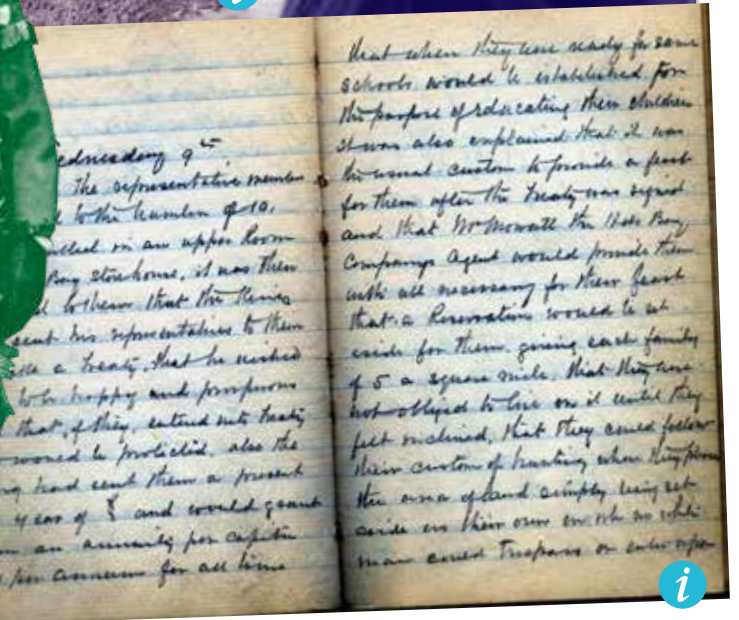 ednesday 9th
The representative member
to the number of 10.
in an upper Room
Bay storehouse, it was then
to them that the King
sent his representatives to them
a Treaty, that he wished
to be happy and prosperous
that, if they, entered into treaty
would be protected, also the
had sent them a present
year of $8 and would grant
an annuity per capita
per annum for all time
that when they were ready for same
schools would be established for
the purpose of educating their children
it was also explained that it was
the usual custom to provide a feast
for them after the Treaty was signed
and that Mr Mowatt the Huds Bay
Companys Agent would provide them
with all necessary for their feast
that a Reservation would be set
aside for them, giving each family
of 5 a square mile, that they were
not obliged to live on it until they
felt inclined, that they could follow
their custom of hunting when they please
the area of land simply being set
aside as their own on wh no white
man could Trespass or enter upon
i